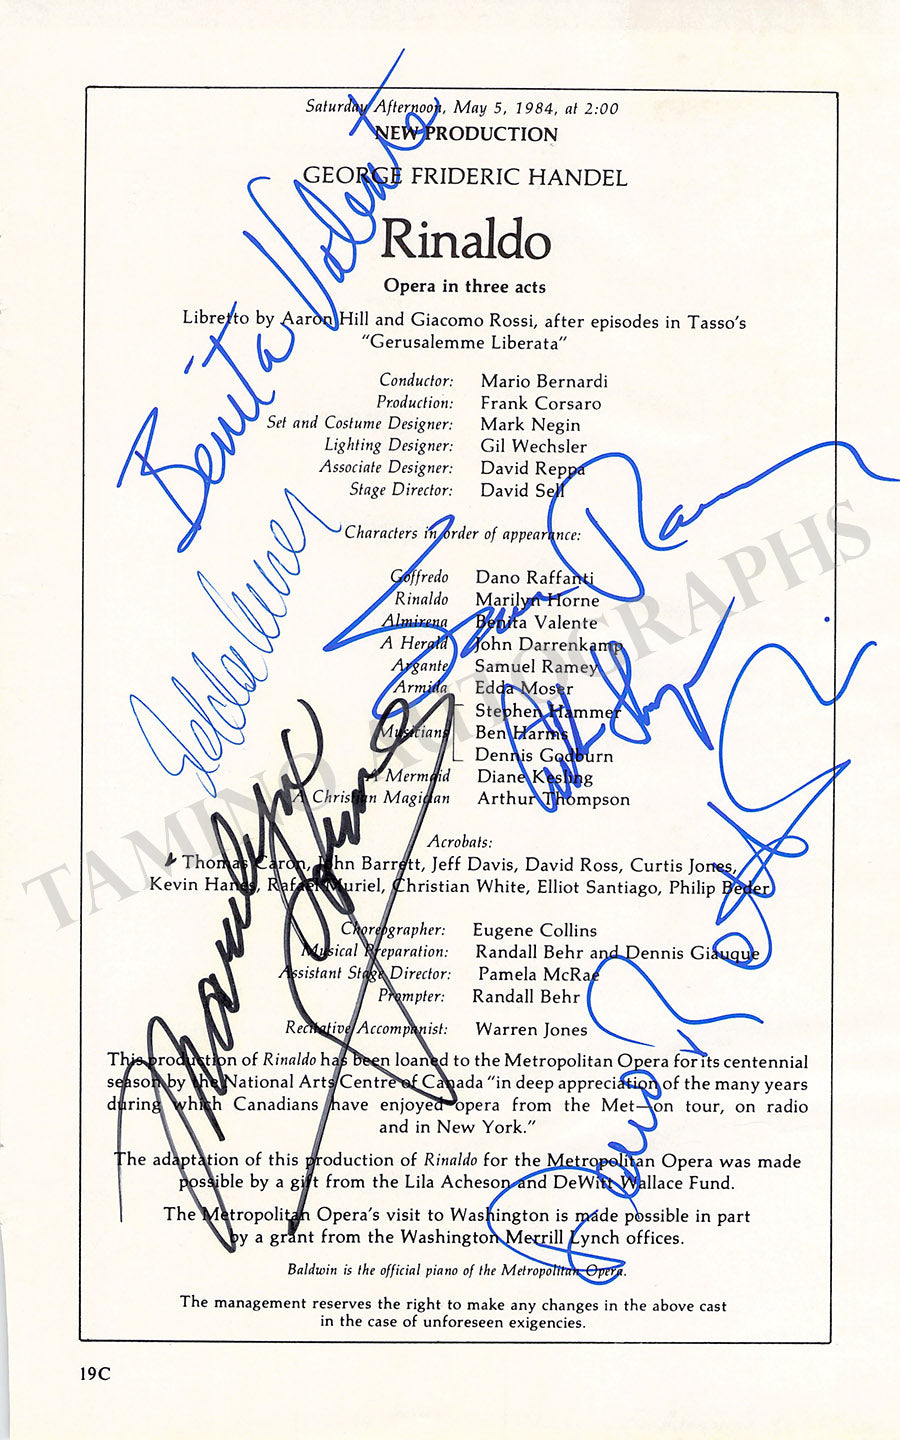 Saturday Afternoon, May 5, 1984, at 2:00
NEW PRODUCTION
GEORGE FRIDERIC HANDEL
Rinaldo
Opera in three acts
Libretto by Aaron Hill and Giacomo Rossi, after episodes in Tasso's
"Gerusalemme Liberata"
Conductor: Mario Bernardi
Production: Frank Corsaro
Set and Costume Designer: Mark Negin
Lighting Designer: Gil Wechsler
Associate Designer: David Reppa
Stage Director: David Sell
Characters in order of appearance:
Goffredo Dano Raffanti
Rinaldo Marilyn Horne
Almirena Benita Valente
A Herald John Darrenkamp
Argante Samuel Ramey
Armida Edda Moser
Musicians Stephen Hammer
Ben Harms
Dennis Godburn
A Mermaid Diane Kesling
A Christian Magician Arthur Thompson
Acrobats:
Thomas Caron, John Barrett, Jeff Davis, David Ross, Curtis Jones,
Kevin Hanes, Rafael Muriel, Christian White, Elliot Santiago, Philip Beder
Choreographer: Eugene Collins
Musical Preparation: Randall Behr and Dennis Giauque
Assistant Stage Director: Pamela McRae
Prompter: Randall Behr
Recitative Accompanist: Warren Jones
This production of Rinaldo has been loaned to the Metropolitan Opera for its centennial
season by the National Arts Centre of Canada "in deep appreciation of the many years
during which Canadians have enjoyed opera from the Met—on tour, on radio
and in New York."
The adaptation of this production of Rinaldo for the Metropolitan Opera was made
possible by a gift from the Lila Acheson and DeWitt Wallace Fund.
The Metropolitan Opera's visit to Washington is made possible in part
by a grant from the Washington Merrill Lynch offices.
Baldwin is the official piano of the Metropolitan Opera.
The management reserves the right to make any changes in the above cast
in the case of unforeseen exigencies.
19C
Benita Valente
Edda Moser
Marilyn Horne
Samuel Ramey
TAMINO AUTOGRAPHS